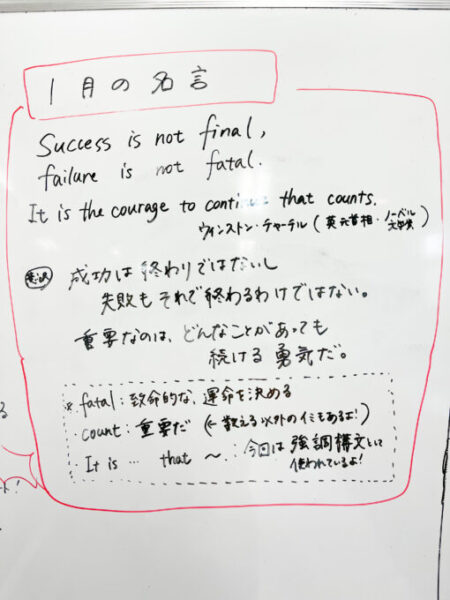 1月の名言
Success is not final,
failure is not fatal.
It is the courage to continue that counts.
ウィンストン・チャーチル(英元首相・ノーベル文学賞)
意訳 成功は終わりではないし
失敗もそれで終わるわけではない。
重要なのは、どんなことがあっても
続ける勇気だ。
※ fatal:致命的な、運命を決める
・count:重要だ (←数える以外のイミもあるよ!)
・It is … that ~.:今回は強調構文として
使われているよ!